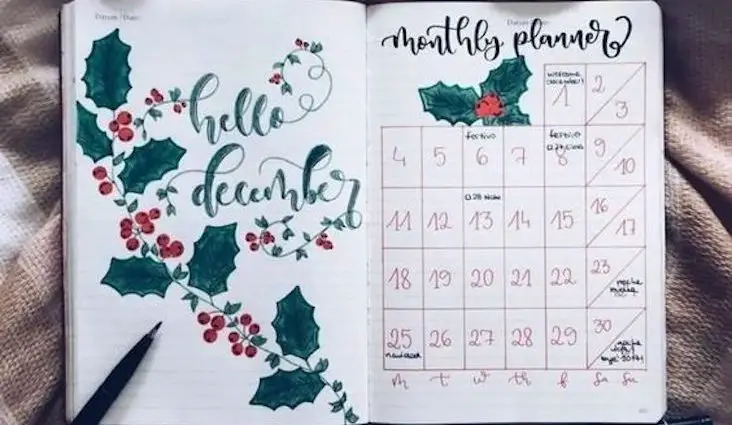 Datum / Date:
hello
december
monthly planner
welcome
december!
1 2 3
festivo festivo
4 5 6 7 8 9 10
11 12 13 14 15 16 17
18 19 20 21 22 23
noche
buena
25 26 27 28 29 30
navidad
noche
vieja!
bye 2017!
m t w th f sa su